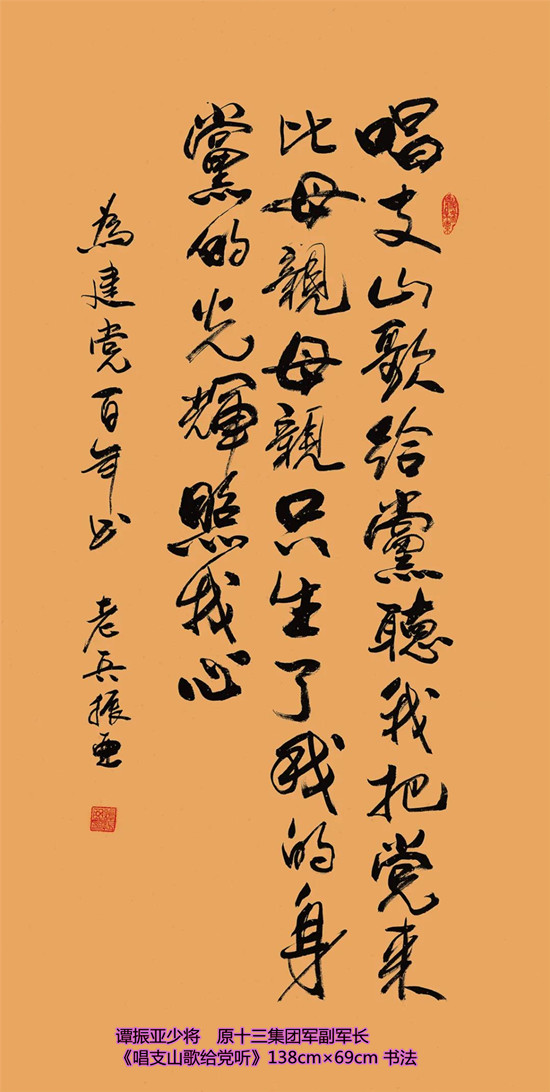 唱支山歌给黨聽我把党来
比母親母親只生了我的身
黨的光輝照我心
為建党百年书 老兵振亚
谭振亚少将 原十三集团军副军长
《唱支山歌给党听》138cm×69cm 书法